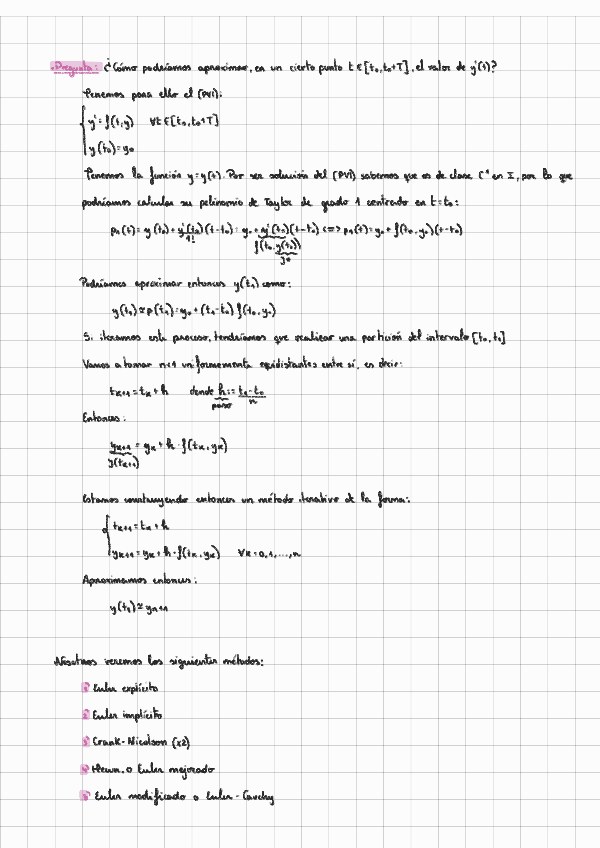 ·Pregunta: ¿Cómo podríamos aproximar, en un cierto punto t∈[t₀,t₀+T], el valor de y(t)?
Tenemos para ello el (PVI):
{ y'=f(t,y) ∀t∈[t₀,t₀+T]
y(t₀)=y₀
Tenemos la función y=y(t). Por ser solución del (PVI) sabemos que es de clase C¹ en I, por lo que
podríamos calcular su polinomio de Taylor de grado 1 centrado en t=t₀:
p₁(t)=y(t₀)+y'(t₀)/1!(t-t₀)=y₀+y'(t₀)(t-t₀) <=> p₁(t)=y₀+f(t₀,y₀)(t-t₀)
f(t₀,y(t₀))
y₀
Podríamos aproximar entonces y(t₁) como:
y(t₁)≃p(t₁)=y₀+(t₁-t₀)f(t₀,y₀)
Si iteramos este proceso, tendríamos que realizar una partición del intervalo [t₀,t₁]
Vamos a tomar n+1 uniformemente equidistantes entre sí, es decir:
tₖ₊₁=tₖ+h donde h:=(t₁-t₀)/n
paso
Entonces:
yₖ₊₁=yₖ+h·f(tₖ,yₖ)
y(tₖ₊₁)
Estamos construyendo entonces un método iterativo de la forma:
{ tₖ₊₁=tₖ+h
yₖ₊₁=yₖ+h·f(tₖ,yₖ) ∀k=0,1,...,n
Aproximamos entonces:
y(t₁)≃yₙ₊₁
Nosotros veremos los siguientes métodos:
1 Euler explícito
2 Euler implícito
3 Crank-Nicolson (x2)
4 Heun, o Euler mejorado
5 Euler modificado o Euler-Cauchy